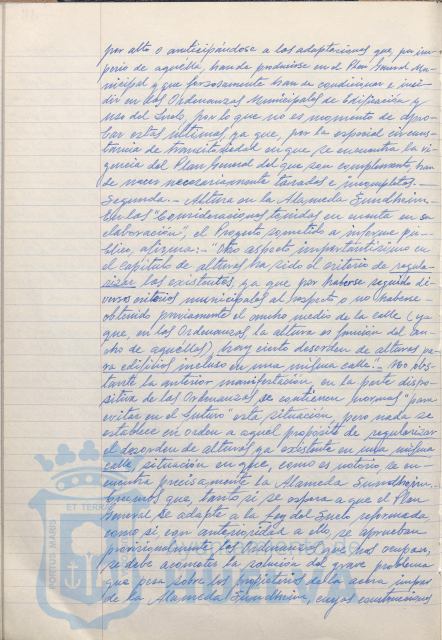 por alto o anticipándose a las adaptaciones que, por im-
perio de aquélla, han de producirse en el Plan General Mu-
nicipal y que forzosamente han de condicionar e inci-
dir en las Ordenanzas Municipales de Edificación y
uso del Suelo, por lo que no es momento de apro-
bar estas últimas ya que, por la especial circuns-
tancia de transitoriedad en que se encuentra la vi-
gencia del Plan General del que son complemento, han
de nacer necesariamente taradas e incompletas.-
Segunda.- Altura en la Alameda Sundheim.-
En las "Consideraciones tenidas en cuenta en su
elaboración", el Proyecto sometido a informe pú-
blico, afirma:- "Otro aspecto importantísimo en
el capítulo de alturas ha sido el criterio de regula-
rizar las existentes, ya que por haberse seguido di-
versos criterios municipales al respecto o no haberse
obtenido previamente el ancho medio de la calle (ya
que, en las Ordenanzas la altura es función del an-
cho de aquéllas), hay cierto desorden de alturas pa-
ra edificios incluso en una misma calle".- No obs-
tante la anterior manifestación, en la parte dispo-
sitiva de las Ordenanzas se contienen normas "para
evitar en el futuro" esta situación, pero nada se
establece en orden a aquel propósito de regularizar
el desorden de alturas ya existente en una misma
calle, situación en que, como es notorio, se en-
cuentra precisamente la Alameda Sundheim.-
Creemos que, tanto si se espera a que el Plan
General se adapte a la Ley del Suelo reformada
como si con anterioridad a ello, se aprueban
provisionalmente las Ordenanzas que nos ocupan,
se debe acometer la solución del grave problema
que pesa sobre los propietarios de la acera impar
de la Alameda Sundheim, cuyas construcciones
PORTUS MARIS
ET TERRAE